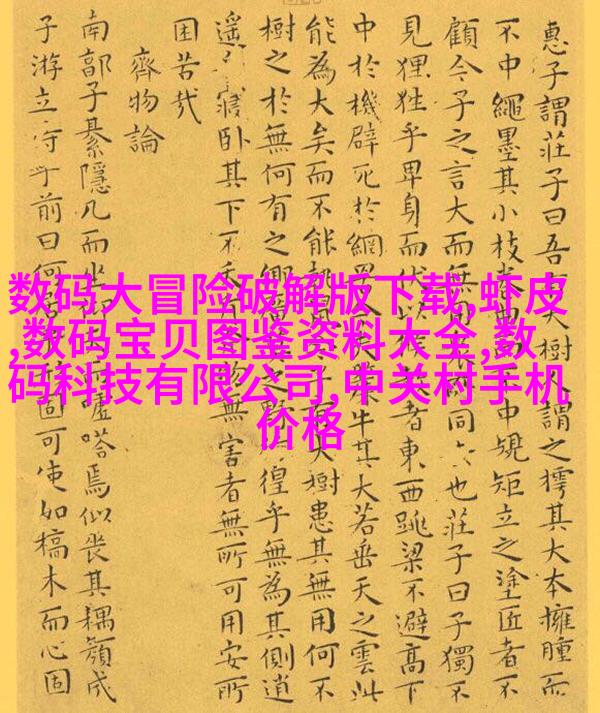 惠子謂莊子曰吾有大樹人謂之樗其大本擁腫而
不中繩墨其小枝卷曲而不中規矩立之塗匠者不
顧今子之言大而無用眾所同去也莊子曰子獨不
見狸狌乎卑身而伏以候敖者東西跳梁不避高下
中於機辟死於網罟今夫斄牛其大若垂天之雲此
能為大矣而不能執鼠今子有大樹患其無用何不
樹之於無何有之鄉廣莫之野彷徨乎無為其側逍
遙乎寢卧其下不夭斤斧物無害者無所可用安所
困苦哉
齊物論
南郭子綦隱几而坐仰天而噓嗒焉似喪其耦顏成
子游立侍乎前曰何居乎形固可使如槁木而心固
数码大冒险破解版下载,虾皮
,数码宝贝图鉴资料大全,数
码科技有限公司,中关村手机
价格